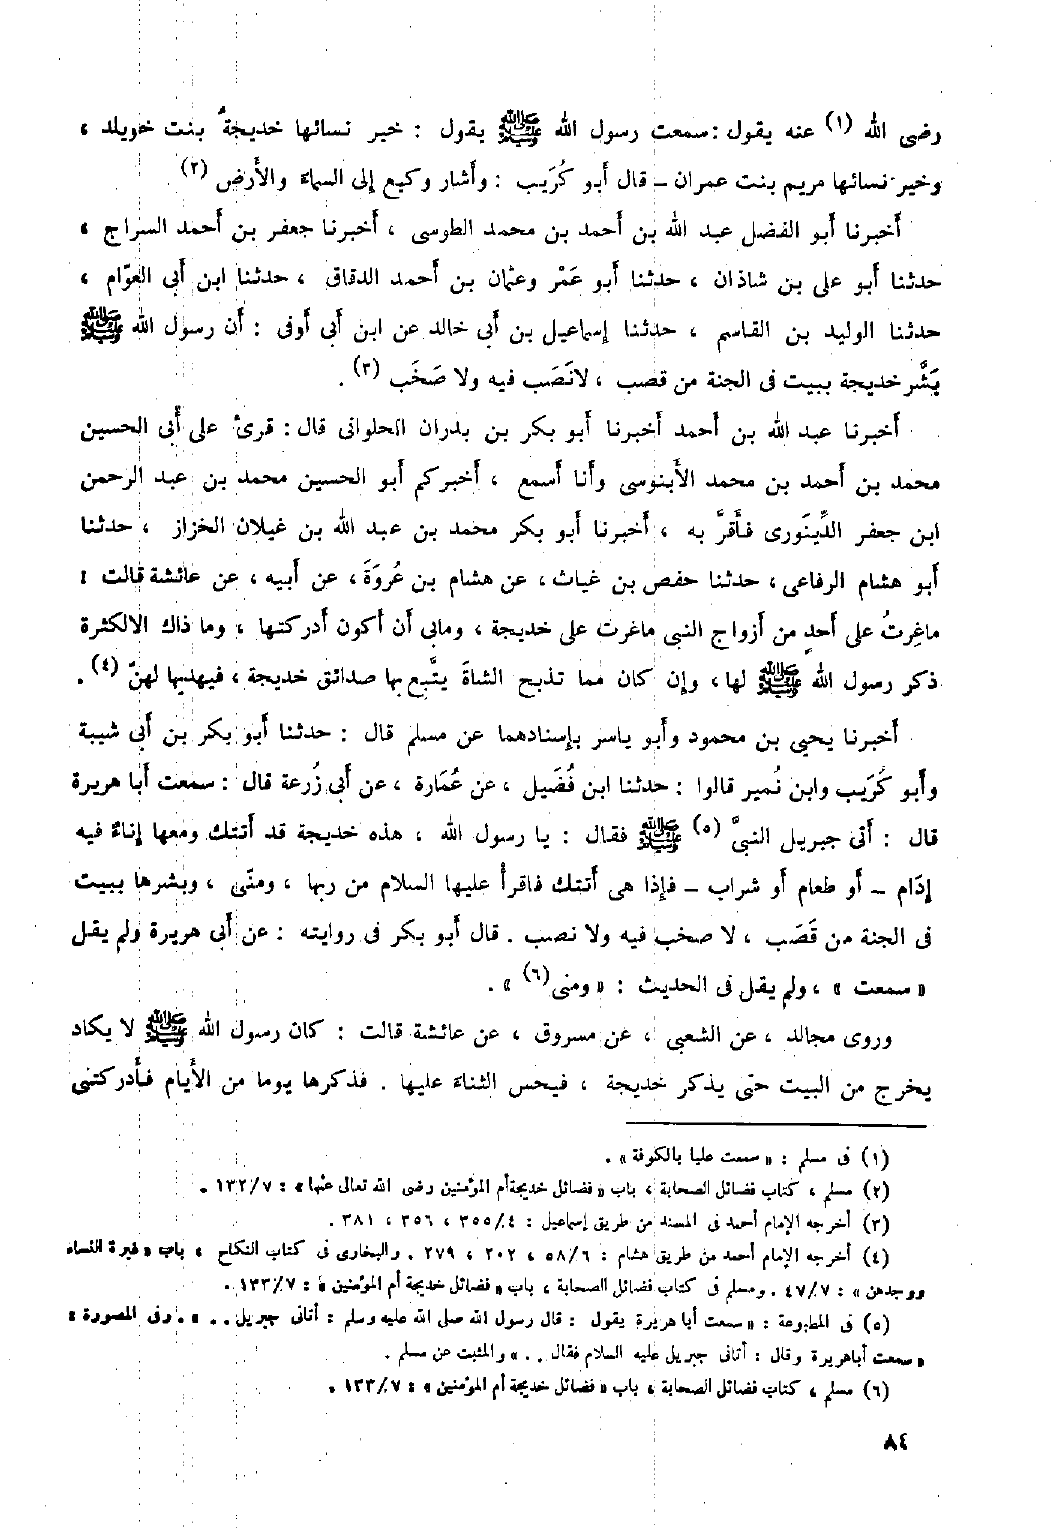 رضى الله (١) عنه يقول : سمعت رسول الله ﷺ يقول : خير نسائها خديجةُ بنت خويلد ،
وخير نسائها مريم بنت عمران – قال أبو كُرَيب : وأشار وكيع إلى السماء والأرض (٢)
أخبرنا أبو الفضل عبد الله بن أحمد بن محمد الطوسى ، أخبرنا جعفر بن أحمد السراج ،
حدثنا أبو على بن شاذان ، حدثنا أبو عَمْر وعثمان بن أحمد الدقاق ، حدثنا ابن أبى العوّام ،
حدثنا الوليد بن القاسم ، حدثنا إسماعيل بن أبى خالد عن ابن أبى أوفى : أن رسول الله ﷺ
بَشَّر خديجة ببيت فى الجنة من قصب ، لانَصَب فيه ولا صَخَب (٣) .
أخبرنا عبد الله بن أحمد أخبرنا أبو بكر بن بدران الحلوانى قال : قرئ على أبى الحسين
محمد بن أحمد بن محمد الأبنوسى وأنا أسمع ، أخبركم أبو الحسين محمد بن عبد الرحمن
ابن جعفر الدِّينَورى فأَقرَّ به ، أخبرنا أبو بكر محمد بن عبد الله بن غيلان الخزاز ، حدثنا
أبو هشام الرفاعى ، حدثنا حفص بن غياث ، عن هشام بن عُروَةَ ، عن أبيه ، عن عائشة قالت :
ماغِرتُ على أحدٍ من أزواج النبى ماغرت على خديجة ، ومابى أن أكون أدركتها ، وما ذاك الالكثرة
ذكر رسول الله ﷺ لها ، وإن كان مما تذبح الشاةَ يتَّبع بها صدائق خديجة ، فيهديها لهنّ (٤) .
أخبرنا يحيى بن محمود وأبو ياسر بإسنادهما عن مسلم قال : حدثنا أبو بكر بن أبى شيبة
وأبو كُرَيب وابن نُمير قالوا : حدثنا ابن فُضَيل ، عن عُمَارة ، عن أبى زُرعة قال : سمعت أبا هريرة
قال : أتى جبريل النبىَّ (٥) ﷺ فقال : يا رسول الله ، هذه خديجة قد أتتك ومعها إناءٌ فيه
إدَام – أو طعام أو شراب – فإذا هى أتتك فاقرأ عليها السلام من ربها ، ومنّى ، وبشرها ببيت
فى الجنة من قَصَب ، لا صخب فيه ولا نصب . قال أبو بكر فى روايته : عن أبى هريرة ولم يقل
« سمعت » ، ولم يقل فى الحديث : « ومنى (٦) » .
وروى مجالد ، عن الشعبى ، عن مسروق ، عن عائشة قالت : كان رسول الله ﷺ لا يكاد
يخرج من البيت حتى يذكر خديجة ، فيحس الثناءَ عليها . فذكرها يوما من الأيام فأدركتنى
(١) فى مسلم : « سمعت عليا بالكوفة » .
(٢) مسلم ، كتاب فضائل الصحابة ، باب « فضائل خديجة أم المؤمنين رضى الله تعالى عنها » : ١٣٢/٧ .
(٣) أخرجه الإمام أحمد فى المسند من طريق إسماعيل : ٣٥٥/٤ ، ٣٥٦ ، ٣٨١ .
(٤) أخرجه الإمام أحمد من طريق هشام : ٥٨/٦ ، ٢٠٢ ، ٢٧٩ . والبخارى فى كتاب النكاح ، باب « غيرة النساء
ووجدهن » : ٤٧/٧ . ومسلم فى كتاب فضائل الصحابة ، باب « فضائل خديجة أم المؤمنين » : ١٣٣/٧ .
(٥) فى المطبوعة : « سمعت أبا هريرة يقول : قال رسول الله صلى الله عليه وسلم : أتانى جبريل .. » . وفى المصورة :
« سمعت أباهريرة وقال : أتانى جبريل عليه السلام فقال .. » والمثبت عن مسلم .
(٦) مسلم ، كتاب فضائل الصحابة ، باب « فضائل خديجة أم المؤمنين » : ١٣٣/٧ .
٨٤